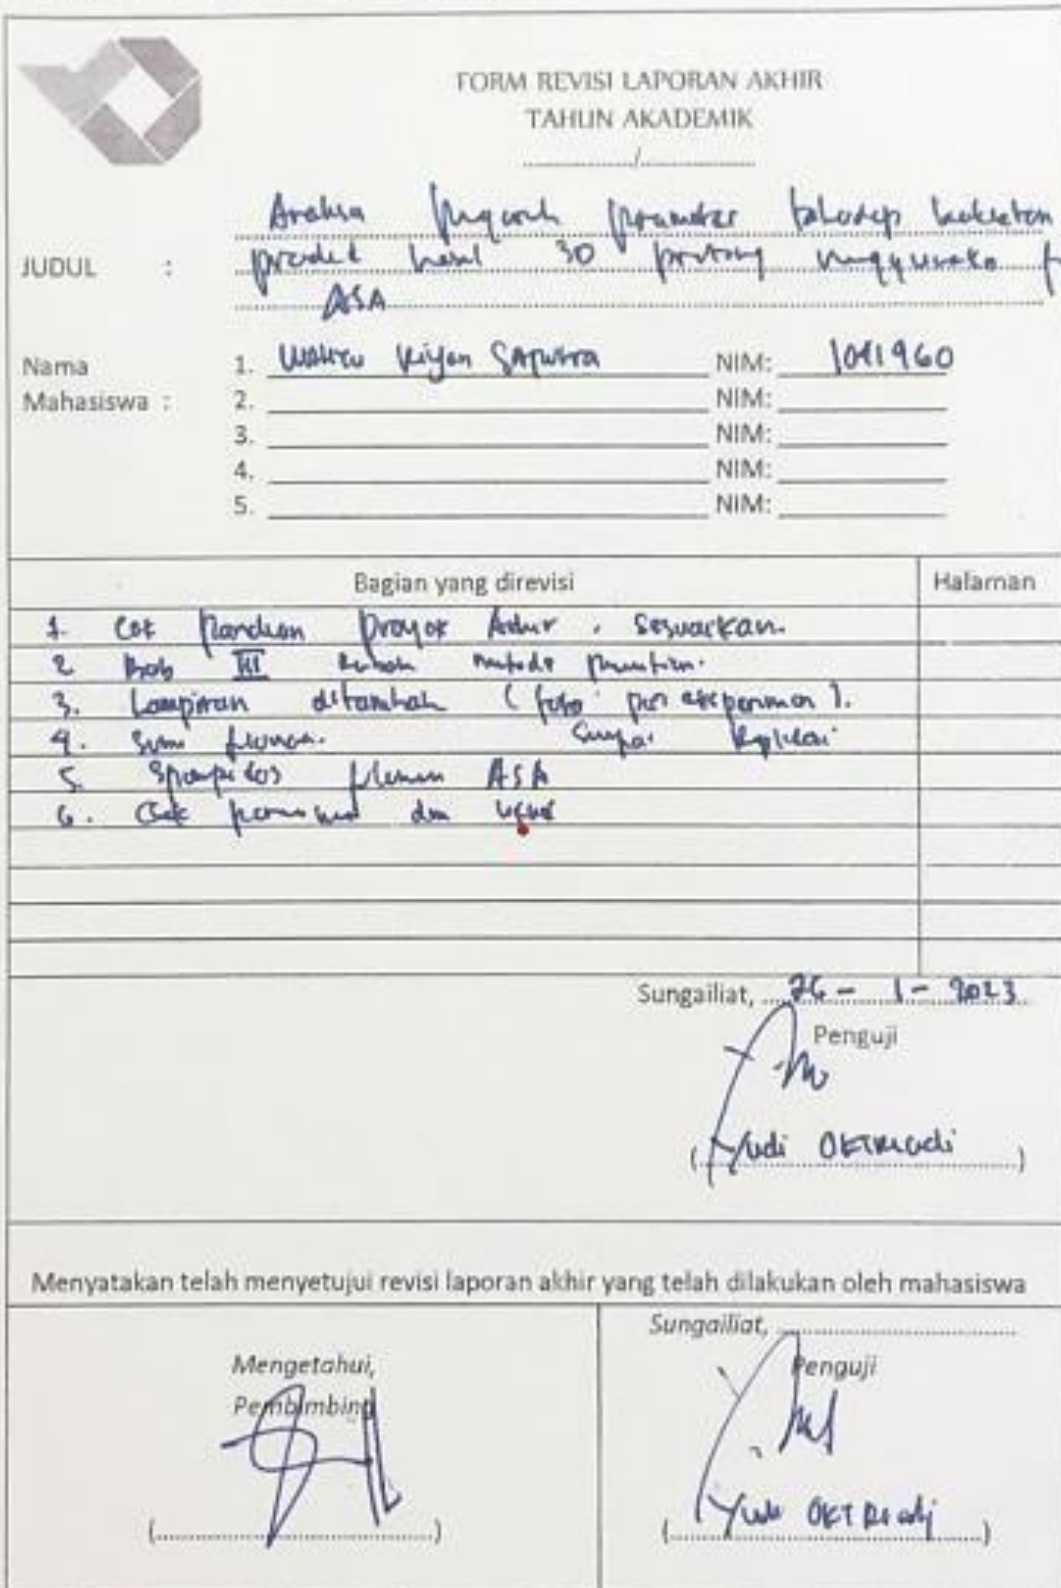 FORM REVISI LAPORAN AKHIR
TAHUN AKADEMIK
................/................
Analisa parameter terhadap
JUDUL : produk hasil 3D printing
ASA
Nama
Mahasiswa :
1. Wahyu Riyan Saputra NIM: 1041960
2. NIM:
3. NIM:
4. NIM:
5. NIM:
Bagian yang direvisi Halaman
1. Cek Panduan Proyek Akhir, sesuaikan.
2 Bab III metode
3. Lampiran ditambah (foto per eksperimen).
4.
5. Filamen ASA
6. Cek dan
Sungailiat, 26 - 1 - 2023
Penguji
(Yudi OKTRIADI)
Menyatakan telah menyetujui revisi laporan akhir yang telah dilakukan oleh mahasiswa
Mengetahui,
Pembimbing
(................)
Sungailiat, ................
Penguji
(Yudi OKTRIADI)